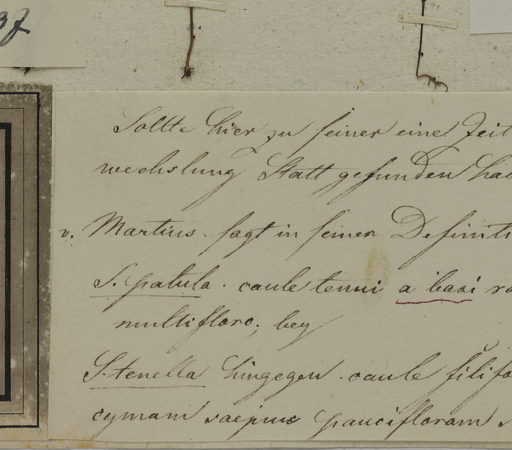 Sollte hier zu seiner eine Zeit
wechslung Statt gefunden ha
v. Martius sagt in seiner Definiti
S. patula. caule tenui a basi ra
multifloro; bey
S. tenella hingegen. caule filifo
cymam saepius paucifloram s